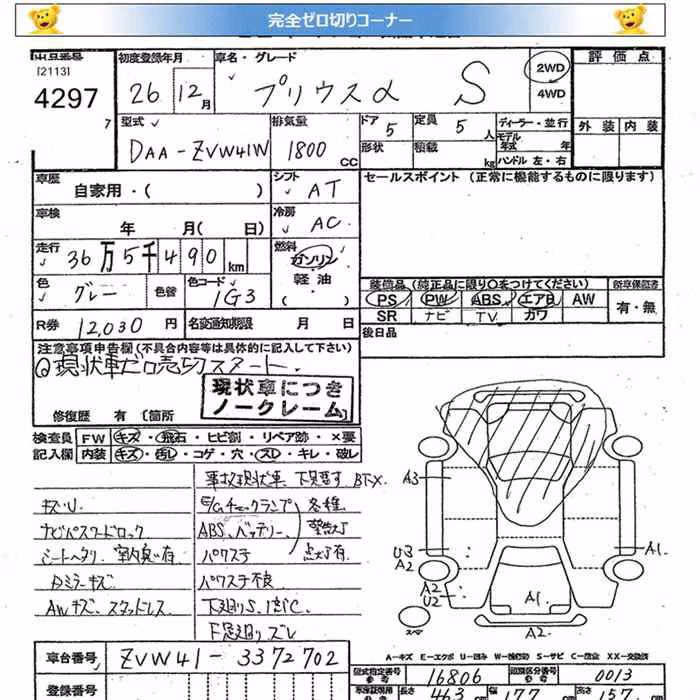 完全ゼロ切りコーナー
出品番号 初度登録年月 車名・グレード 評価点
[2113] 4297 7 26 12月 プリウスα S 2WD
4WD
型式 排気量 ドア 5 定員 5人 ディーラー・並行 外装 内装
DAA-ZVW41W 1800 CC 形状 積載 kg モデル年式 年
ハンドル 左・右
車歴 自家用・( ) シフト AT セールスポイント (正常に機能するものに限ります)
車検 年 月( 日) 冷房 AC
走行 36万5千490km 燃料 ガソリン
軽油
( )
色 グレー 色替 色コード 1G3 装備品 (純正品に限り○をつけてください) 新車保証書
PS PW ABS エアB AW 有・無
SR ナビ TV カワ
R券 12,030円 名変通知期限 月 日 後日品
注意事項申告欄 (不具合内容等は具体的に記入して下さい)
現状車ゼロ売切スタート
現状車につき
ノークレーム
修復歴 有 [箇所 ]
検査員 FW キズ・飛石・ヒビ割・リペア跡・×要
記入欄 内装 キズ・汚レ・コゲ・穴・スレ・キレ・破レ
事故現状車、下見要す BTX
キズU E/Gチェックランプ 各種
ナビパスワードロック ABS、バッテリー 警告灯
シートヘタリ 室内臭い有 パワステ 点灯有
Dミラーキズ パワステ不良
AWキズ、スタッドレス 下廻りS、腐C
F足廻りズレ
A3
U3
A2
A2
U2
A1
A1
A2
スペ
A-キズ E-エクボ U-凹み W-補修跡 S-サビ C-腐食 XX-交換済
車台番号 ZVW41-3372702
型式指定番号 16806 類別区分番号 0013
登録番号 長さ 463 幅 177 高さ 157